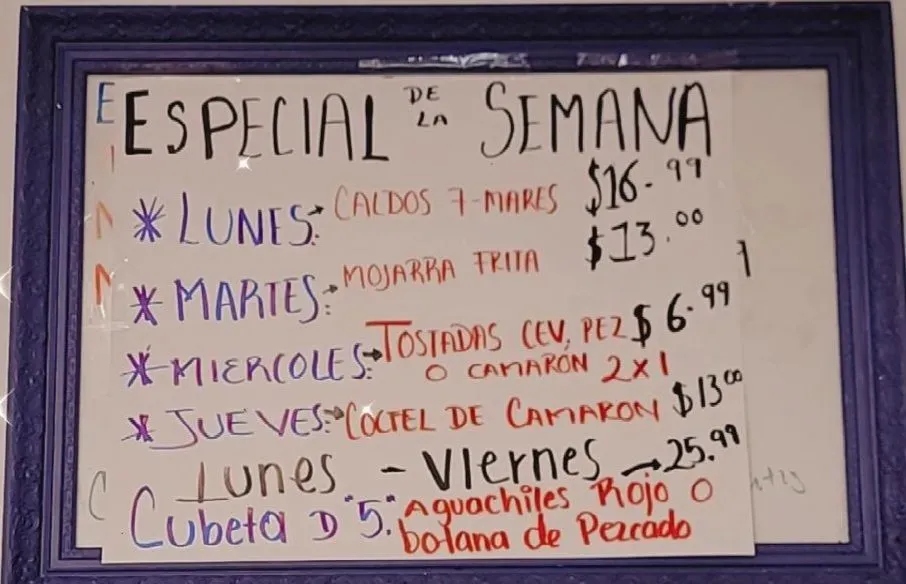 ESPECIAL DE LA SEMANA
* LUNES: CALDOS 7-MARES $16.99
* MARTES: MOJARRA FRITA $13.00
* MIERCOLES: TOSTADAS CEV, PEZ $6.99
O CAMARON 2X1
* JUEVES: COCTEL DE CAMARON $13.00
Lunes - Viernes → 25.99
Cubeta D "5". Aguachiles Rojo O
botana de Pezcado